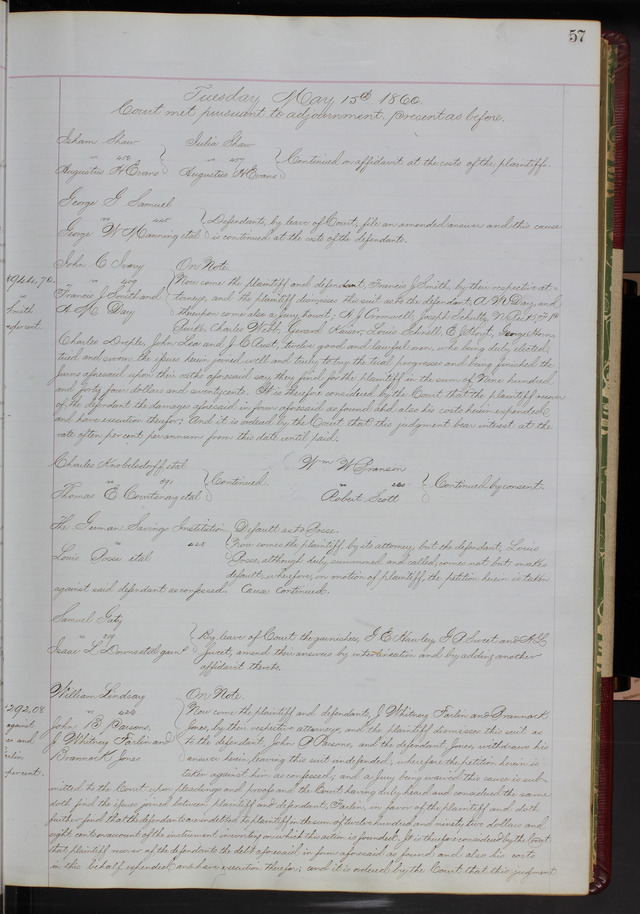 57
Tuesday May 15th 1860.
Court met pursuant to adjournment. Present as before.
Isham Shaw
vs
Augustus H Evans
Julia Shaw
vs
Augustus H Evans
Continued on affidavit at the costs of the plaintiff.
George G Samuel
vs
George W Manning etal
Defendants, by leave of Court, file an amended answer and this cause
is continued at the costs of the defendant.
John C Ivory
vs
Francis J Smith and
A. W. Day
On Note.
Now come the plaintiff and defendant, Francis J Smith, by their respective at-
torneys, and the plaintiff dismisses this suit as to the defendant, A W Day, and
thereupon come also a jury, to wit,
Charles Webb, Gerard Kaiser, Louis
Charles Duple, John Lea and J C Rust, twelve good and lawful men, who being duly elected,
tried and sworn the issues herein joined well and truly to try the trial progresses and being finished the
Jurors aforesaid upon their oaths aforesaid say they find for the plaintiff in the sum of Nine hundred
and forty four dollars and seventy cents. It is therefore considered by the Court that the plaintiff recover
of the defendant the damages aforesaid in form aforesaid as found and also his costs herein expended
and have execution therefor; And it is ordered by the Court that this judgment bear interest at the
rate of ten per cent per annum from this date until paid.
$944.70
Smith
per cent.
Charles Knobelsdorff etal
vs
Thomas E Courtenay etal
Continued.
Wm W Branson
vs
Robert Scott
Continued by consent.
The German Savings Institution
vs
Louis Posse etal
Default as to Posse.
Now comes the plaintiff, by its attorney, but the defendant, Louis
Posse, although duly summoned and called, comes not but makes
default, wherefore, on motion of plaintiff, the petition herein is taken
against said defendant as confessed. Cause continued.
Samuel Gaty
vs
Isaac L Downs etal garn
By leave of Court the garnishees, G E Hawley, G P Sweet and A L
Sweet, amend their answers by interlineation and by adding another
affidavit thereto.
William Lindsay
vs
John P Parsons,
J Whitney Farlin and
Brannock Jones
On Note.
Now come the plaintiff and defendants, J Whitney Farlin and Brannock
Jones, by their respective attorneys, and the plaintiff dismisses this suit as
to the defendant, John P Parsons, and the defendant Jones, withdraws his
answer herein, leaving this suit undefended, wherefore the petition herein is
taken against him as confessed; and a jury being waived this cause is sub-
mitted to the Court upon pleadings and proof and the Court having duly heard and considered the same
doth find the issues joined between plaintiff and defendant, Farlin, in favor of the plaintiff and doth
further find that the defendants are indebted to plaintiff in the sum of twelve hundred and ninety two dollars and
eight cents on account of the instrument in writing on which this action is founded. It is therefore considered by the Court
that plaintiff recover of the defendants the debt aforesaid in form aforesaid as found and also his costs
in this behalf expended and have execution therefor; and it is ordered by the Court that this judgment
1292.08
against
and
Farlin
per cent.